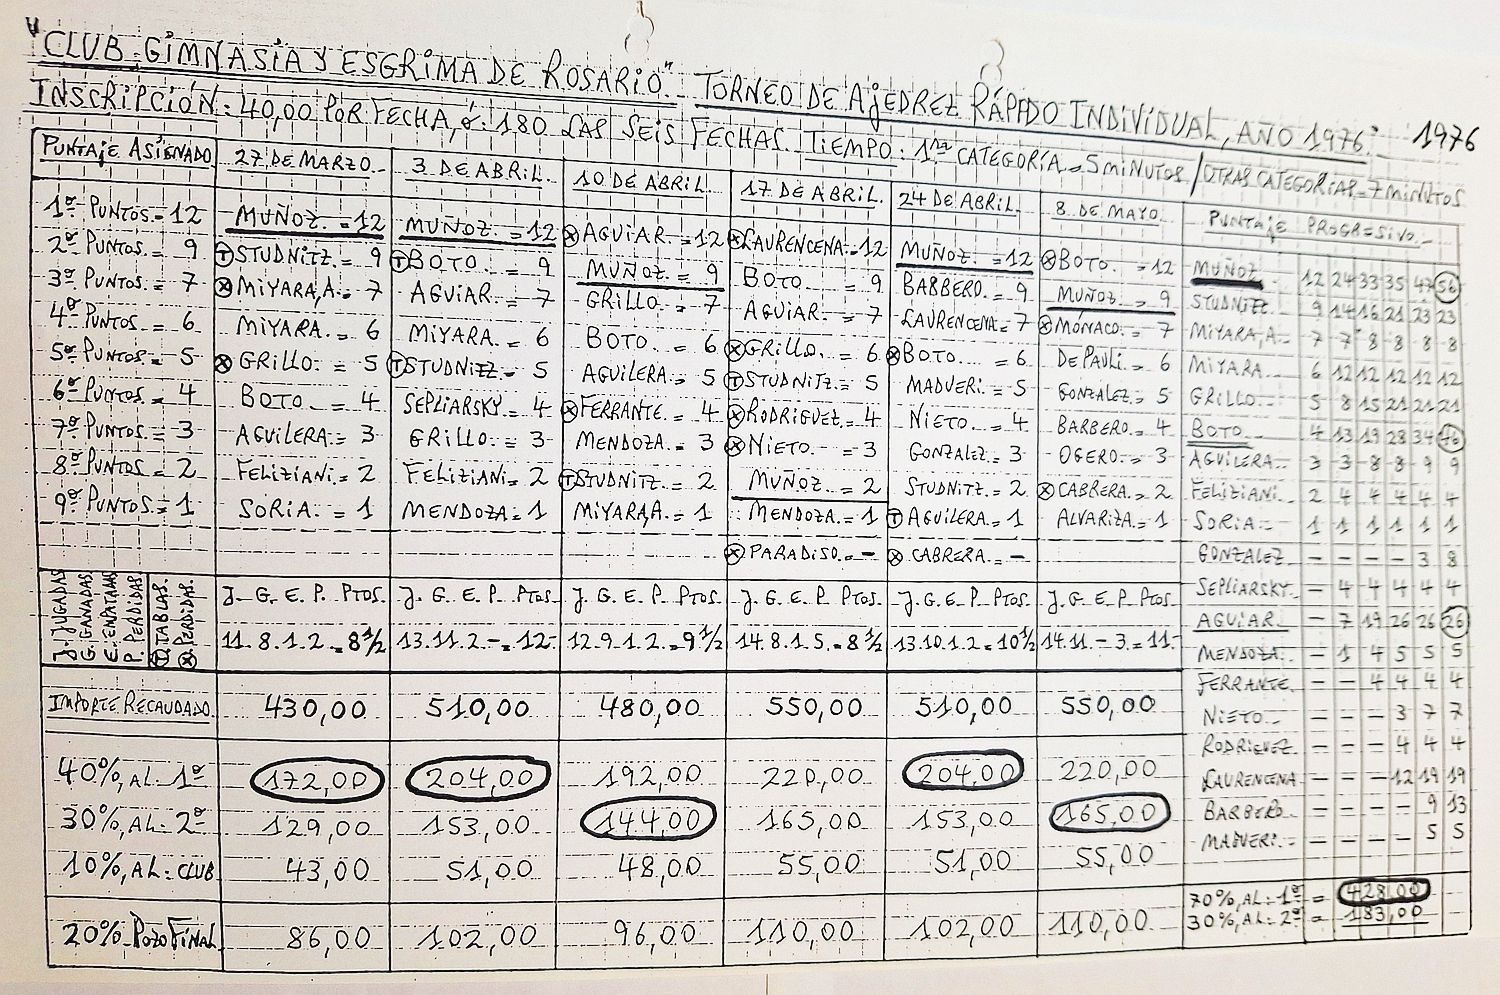 "CLUB GIMNASIA Y ESGRIMA DE ROSARIO" TORNEO DE AJEDREZ RÁPIDO INDIVIDUAL, AÑO 1976" 1976
INSCRIPCIÓN: 40,00 POR FECHA, ó: 180 LAS SEIS FECHAS. TIEMPO: 1ra CATEGORÍA = 5 MINUTOS / OTRAS CATEGORÍAS = 7 MINUTOS
PUNTAJE ASIGNADO 27 DE MARZO. 3 DE ABRIL. 10 DE ABRIL 17 DE ABRIL. 24 DE ABRIL. 8 DE MAYO. PUNTAJE PROGRESIVO.
1º PUNTOS = 12 MUÑOZ. = 12 MUÑOZ. = 12 ⓧ AGUIAR. = 12 ⓧ LAURENCENA. = 12 MUÑOZ. = 12 ⓧ BOTO. = 12
2º PUNTOS. = 9 Ⓣ STUDNITZ. = 9 Ⓣ BOTO. = 9 MUÑOZ. = 9 BOTO = 9 BARBERO. = 9 MUÑOZ. = 9
3º PUNTOS. = 7 ⓧ MIYARA, A. = 7 AGUIAR. = 7 GRILLO. = 7 AGUIAR. = 7 LAURENCENA. = 7 ⓧ MÓNACO. = 7
4º PUNTOS. = 6 MIYARA. = 6 MIYARA = 6 BOTO. = 6 ⓧ GRILLO. = 6 ⓧ BOTO. = 6 DE PAULI. = 6
5º PUNTOS. = 5 ⓧ GRILLO. = 5 Ⓣ STUDNITZ = 5 AGUILERA. = 5 Ⓣ STUDNITZ. = 5 MADVERI. = 5 GONZALEZ. = 5
6º PUNTOS. = 4 BOTO. = 4 SEPLIARSKY. = 4 ⓧ FERRANTE. = 4 ⓧ RODRIGUEZ. = 4 NIETO. = 4 BARBERO. = 4
7º PUNTOS. = 3 AGUILERA. = 3 GRILLO. = 3 MENDOZA. = 3 ⓧ NIETO. = 3 GONZALEZ. = 3 OGERO. = 3
8º PUNTOS. = 2 FELIZIANI. = 2 FELIZIANI. = 2 Ⓣ STUDNITZ. = 2 MUÑOZ. = 2 STUDNITZ. = 2 ⓧ CABRERA. = 2
9º PUNTOS. = 1 SORIA. = 1 MENDOZA. = 1 MIYARA, A. = 1 MENDOZA. = 1 Ⓣ AGUILERA. = 1 ALVARIZA. = 1
ⓧ PARADISO. = - ⓧ CABRERA. = -
J. JUGADAS
G. GANADAS.
E. EMPATADAS
P. PERDIDAS.
Ⓣ TABLAS.
ⓧ PERDIDAS.
J. G. E. P. Ptos. J. G. E. P. Ptos. J. G. E. P. Ptos. J. G. E. P. Ptos. J. G. E. P. Ptos. J. G. E. P. Ptos.
11. 8. 1. 2. = 8 1/2 13. 11. 2. - = 12- 12. 9. 1. 2. = 9 1/2 14. 8. 1. 5. = 8 1/2 13. 10. 1. 2. = 10 1/2 14. 11. - 3. = 11-
IMPORTE RECAUDADO. 430,00 510,00 480,00 550,00 510,00 550,00
40%, AL. 1º 172,00 204,00 192,00 220,00 204,00 220,00
30%, AL. 2º 129,00 153,00 144,00 165,00 153,00 165,00
10%, AL. CLUB 43,00 51,00 48,00 55,00 51,00 55,00
20% POZO FINAL 86,00 102,00 96,00 110,00 102,00 110,00
MUÑOZ. 12 24 33 35 47 56
STUDNITZ 9 14 16 21 23 23
MIYARA, A. 7 7 8 8 8 8
MIYARA 6 12 12 12 12 12
GRILLO. 5 8 15 21 21 21
BOTO. 4 13 19 28 34 46
AGUILERA. 3 3 8 8 9 9
FELIZIANI. 2 4 4 4 4 4
SORIA. 1 1 1 1 1 1
GONZALEZ - - - - 3 8
SEPLIARSKY. - 4 4 4 4 4
AGUIAR. - 7 19 26 26 26
MENDOZA. - 1 4 5 5 5
FERRANTE. - - 4 4 4 4
NIETO. - - - 3 7 7
RODRIGUEZ. - - - 4 4 4
LAURENCENA - - - 12 19 19
BARBERO. - - - - 9 13
MADVERI. - - - - 5 5
70%, AL. 1º = 428,00
30%, AL. 2º = 183,00